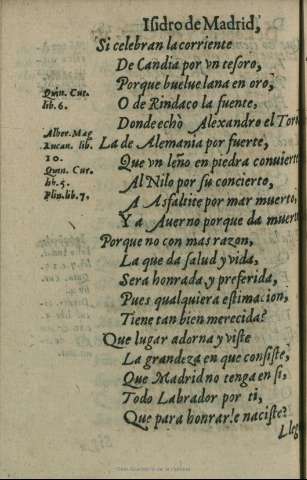 Isidro de Madrid,
Si celebran la corriente
De Candia por vn tesoro,
Porque buelue lana en oro,
Quin. Cur.
lib. 6.
O de Rindaco la fuente,
Donde echò Alexandro el Toro
Alber. Mag
Lucan. lib.
10.
La de Alemania por fuerte,
Que vn leño en piedra conuierte
Quin. Cur.
lib. 5.
Plin. lib. 7.
Al Nilo por su concierto,
A Asfaltite por mar muerto,
Y a Auerno porque da muerte
Porque no con mas razon,
La que da salud y vida,
Sera honrada, y preferida,
Pues qualquiera estimacion,
Tiene tan bien merecida?
Que lugar adorna y viste
La grandeza en que consiste,
Que Madrid no tenga en si,
Todo Labrador por ti,
Que para honrarle naciste?
Lleg